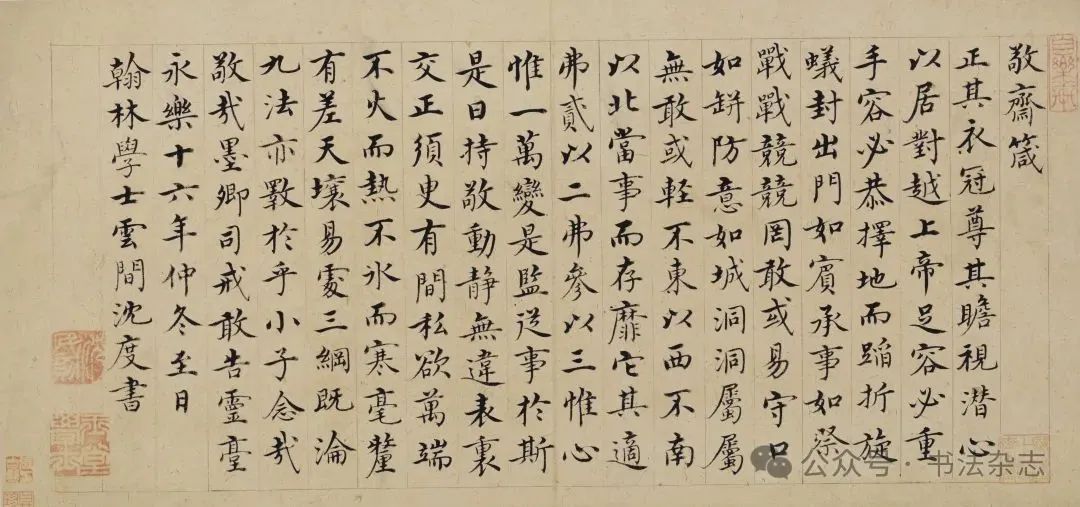 敬齋箴
正其衣冠尊其瞻視潜心
以居對越上帝足容必重
手容必恭擇地而蹈折旋
蟻封出門如賓承事如祭
戰戰競競罔敢或易守口
如缾防意如城洞洞屬屬
無敢或軽不東以西不南
以北當事而存靡它其適
弗貳以二弗參以三惟心
惟一萬變是監從事於斯
是曰持敬動静無違表裏
交正須臾有間私欲萬端
不火而熱不氷而寒毫釐
有差天壤易處三綱既淪
九法亦斁於乎小子念哉
敬哉墨卿司戒敢告靈臺
永樂十六年仲冬至日
翰林學士雲間沈度書
公众号·书法杂志